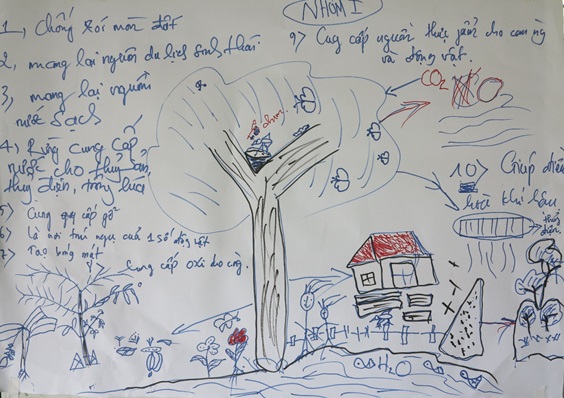 NHÓM I
1, Chống xói mòn đất
2, mang lại nguồn du lịch sinh thái
3, mang lại nguồn
nước sạch
4) Rừng cung cấp
nước cho thủy sản,
thủy điện, trồng lúa
5) Cung cấp gỗ
6) Là nơi trú ngụ của 1 số động vật
7) Tạo bóng mát
Cung cấp oxi cho
9) Cung cấp nguồn thực phẩm cho con ng
và động vật.
CO2
10) Giúp điều
hoà khí hậu
thủy
điện
H2O